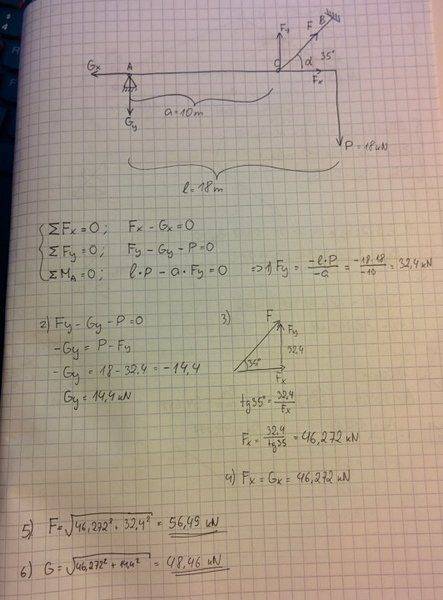 Fy F B
Gx A C α 35°
Fx
a=10m
Gy
P=18kN
l=18m
ΣFx=0; Fx-Gx=0
ΣFy=0; Fy-Gy-P=0
ΣMA=0; l·P-a·Fy=0 =>1) Fy=-l·P/-a=-18·18/-10=32,4kN
2) Fy-Gy-P=0
-Gy=P-Fy
-Gy=18-32,4=-14,4
Gy=14,4kN
3) F
Fy
32,4
35°
Fx
tg35°=32,4/Fx
Fx=32,4/tg35=46,272kN
4) Fx=Gx=46,272kN
5) F=√46,272²+32,4²=56,49kN
6) G=√46,272²+14,4²=48,46kN